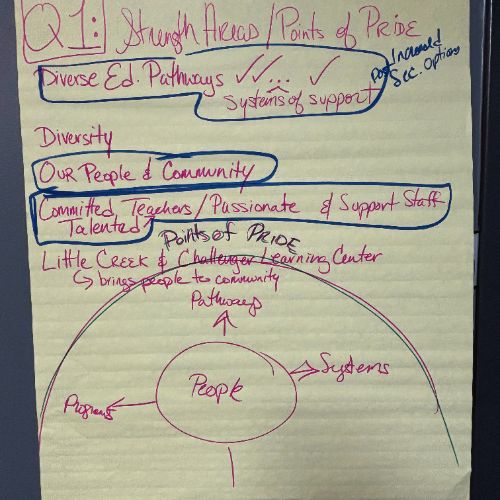 Q1: Strength Areas / Points of Pride
Diverse Ed. Pathways
Systems of support
Sec. Options
Diversity
Our People & Community
Committed Teachers / Passionate & Support Staff
Talented
Points of Pride
Little Creek & Challenger Learning Center
brings people to community
Pathways
Systems
People
Programs